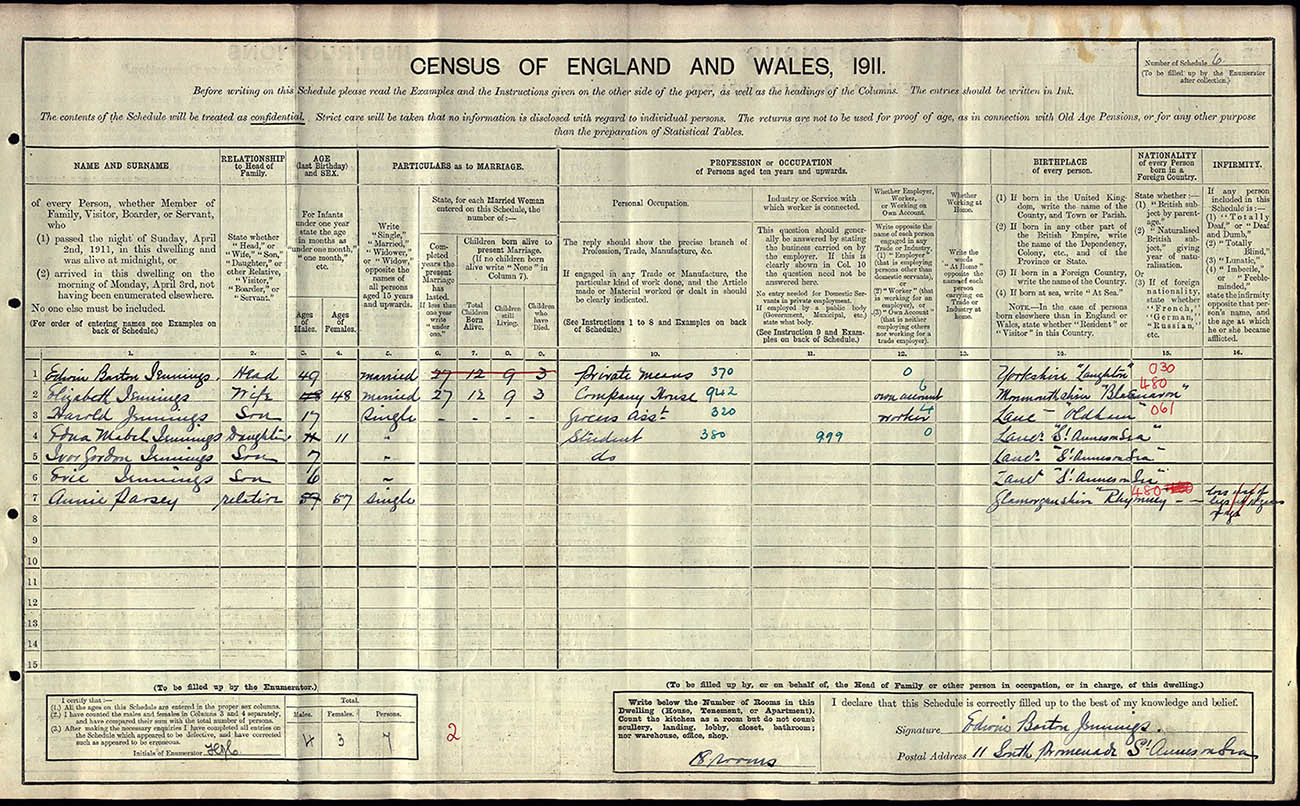 CENSUS OF ENGLAND AND WALES, 1911.
Number of Schedule 6
(To be filled up by the Enumerator
after collection.)
Before writing on this Schedule please read the Examples and the Instructions given on the other side of the paper, as well as the headings of the Columns. The entries should be written in Ink.
The contents of the Schedule will be treated as confidential. Strict care will be taken that no information is disclosed with regard to individual persons. The returns are not to be used for proof of age, as in connection with Old Age Pensions, or for any other purpose
than the preparation of Statistical Tables.
NAME AND SURNAME
of every Person, whether Member of
Family, Visitor, Boarder, or Servant,
who
(1) passed the night of Sunday, April
2nd, 1911, in this dwelling and
was alive at midnight, or
(2) arrived in this dwelling on the
morning of Monday, April 3rd, not
having been enumerated elsewhere.
No one else must be included.
(For order of entering names see Examples on
back of Schedule.)
RELATIONSHIP
to Head of
Family.
State whether
"Head," or
"Wife," "Son,"
"Daughter," or
other Relative,
"Visitor,"
"Boarder," or
"Servant."
AGE
(last Birthday)
and SEX.
For Infants
under one year
state the age
in months as
"under one month,"
"one month,"
etc.
Ages
of
Males.
Ages
of
Females.
PARTICULARS as to MARRIAGE.
Write
"Single,"
"Married,"
"Widower,"
or "Widow,"
opposite the
names of
all persons
aged 15 years
and upwards.
State, for each Married Woman
entered on this Schedule, the
number of:—
Completed
years the
present
Marriage
has
lasted.
If less than
one year
write
"under
one."
Children born alive to
present Marriage.
(If no children born
alive write "None" in
Column 7).
Total
Children
Born
Alive.
Children
still
Living.
Children
who
have
Died.
PROFESSION or OCCUPATION
of Persons aged ten years and upwards.
Personal Occupation.
The reply should show the precise branch of
Profession, Trade, Manufacture, &c.
If engaged in any Trade or Manufacture, the
particular kind of work done, and the Article
made or Material worked or dealt in should
be clearly indicated.
(See Instructions 1 to 8 and Examples on back
of Schedule.)
Industry or Service with
which worker is connected.
This question should generally
be answered by stating
the business carried on by
the employer. If this is
clearly shown in Col. 10
the question need not be
answered here.
No entry needed for Domestic Servants
in private employment.
If employed by a public body
(Government, Municipal, etc.)
state what body.
(See Instruction 9 and Examples
on back of Schedule.)
Whether Employer,
Worker,
or Working on
Own Account.
Write opposite the
name of each person
engaged in any
Trade or Industry,
(1) "Employer"
(that is employing
persons other than
domestic servants),
or
(2) "Worker" (that
is working for an
employer), or
(3) "Own Account"
(that is neither
employing others nor
working for a
trade employer).
Whether
Working at
Home.
Write the
words
"At Home"
opposite the
name of each
person
carrying on
Trade or
Industry at
home.
BIRTHPLACE
of every person.
(1) If born in the United Kingdom,
write the name of the
County, and Town or Parish.
(2) If born in any other part of
the British Empire, write
the name of the Dependency,
Colony, etc., and of the
Province or State.
(3) If born in a Foreign Country,
write the name of the Country.
(4) If born at sea, write "At Sea."
NOTE.—In the case of persons
born elsewhere than in England or
Wales, state whether "Resident" or
"Visitor" in this Country.
NATIONALITY
of every Person
born in a
Foreign Country.
State whether:—
(1) "British subject
by parentage."
(2) "Naturalised
British
subject,"
giving
year of naturalisation.
Or
(3) If of foreign
nationality,
state whether
"French,"
"German,"
"Russian,"
etc.
INFIRMITY.
If any person
included in this
Schedule is:—
(1) "Totally
Deaf," or "Deaf
and Dumb,"
(2) "Totally
Blind,"
(3) "Lunatic,"
(4) "Imbecile,"
or "Feeble-minded,"
state the infirmity
opposite that person's
name, and
the age at which
he or she became
afflicted.
1. 2. 3. 4. 5. 6. 7. 8. 9. 10. 11. 12. 13. 14. 15. 16.
1 Edwin Barton Jennings. Head 49 married 27 12 9 3 Private means 370 0 Yorkshire "Laughton" 030
2 Elizabeth Jennings Wife 48 48 married 27 12 9 3 Company House 942 6 own account Monmouthshire "Blaenavon" 480
3 Harold Jennings Son 17 Single - - - - Grocers Asst 320 4 worker Lanc "Oldham" 061
4 Edna Mabel Jennings Daughter 11 11 " Student 380 999 0 Lanc "St Annes on Sea"
5 Ivor Gordon Jennings Son 7 " do Lanc "St Annes on Sea"
6 Eric Jennings Son 6 Lanc "St Annes on Sea"
7 Annie Parsey relation 57 57 Single Glamorganshire "Rhymney 480
8
9
10
11
12
13
14
15
(To be filled up by the Enumerator.)
I certify that:—
(1.) All the ages on this Schedule are entered in the proper sex columns.
(2.) I have counted the males and females in Columns 3 and 4 separately,
and have compared their sum with the total number of persons.
(3.) After making the necessary enquiries I have completed all entries on
the Schedule which appeared to be defective, and have corrected
such as appeared to be erroneous.
Initials of Enumerator
Total.
Males. Females. Persons.
4 3 7
2
(To be filled up by, or on behalf of, the Head of Family or other person in occupation, or in charge, of this dwelling.)
Write below the Number of Rooms in this
Dwelling (House, Tenement, or Apartment).
Count the kitchen as a room but do not count
scullery, landing, lobby, closet, bathroom;
nor warehouse, office, shop.
rooms
I declare that this Schedule is correctly filled up to the best of my knowledge and belief.
Signature Edwin Barton Jennings.
Postal Address 11 South Promenade St Annes on Sea